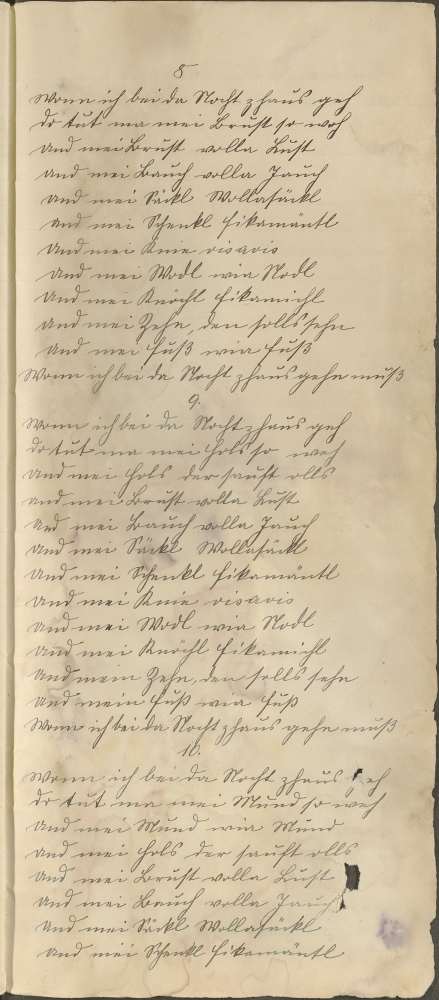 8
Wonn ich bei da Nocht zhaus geh
do tut ma mei Brust so weh
und mei Brust volla Lust
und mei Bauch volla Jauch
und mei Säckl Wollasäckl
und mei Schenkl fikamäntl
und mei Knie visavis
und mei Wodl wia Nodl
und mei Knöchl fikamichl
und mei Zehn, den solls sehn
und mei Fuß wia Fuß
Wonn ich bei da Nocht zhaus gehn muß
9.
Wonn ich bei da Nocht zhaus geh
do tut ma mei Hols so weh
und mei Hols der sauft olls
und mei Brust volla Lust
und mei Bauch volla Jauch
und mei Säckl Wollasäckl
und mei Schenkl fikamäntl
und mei Knie visavis
und mei Wodl wia Nodl
und mei Knöchl fikamichl
und mein Zehn, den solls sehn
und mein Fuß wia Fuß
Wonn ich bei da Nocht zhaus gehn muß
10.
Wonn ich bei da Nocht zhaus geh
do tut ma mei Mund so weh
und mei Mund wia Mund
und mei Hols der sauft olls
und mei Brust volla Lust
und mei Bauch volla Jauch
und mei Säckl Wollasäckl
und mei Schenkl fikamäntl